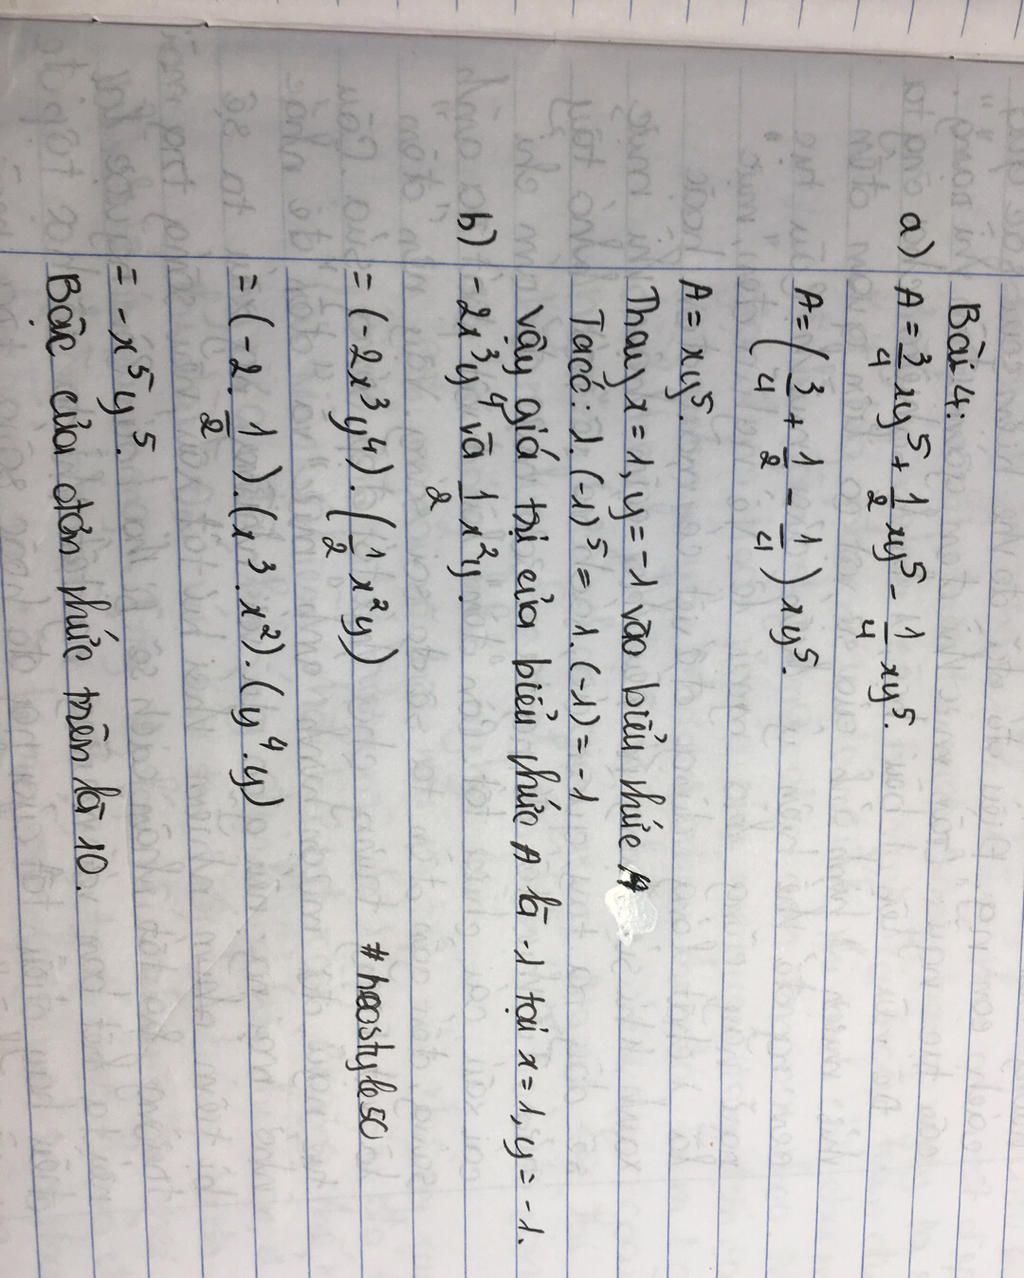 Bài 4:
a) A = 3/4 xy⁵ + 1/2 xy⁵ - 1/4 xy⁵.
A = (3/4 + 1/2 - 1/4) xy⁵.
A = xy⁵.
Thay x = 1, y = -1 vào biểu thức A
Ta có: 1.(-1)⁵ = 1.(-1) = -1
Vậy giá trị của biểu thức A là -1 tại x = 1, y = -1.
b) -2x³y⁴ và 1/2 x²y.
= (-2x³y⁴).(1/2 x²y)
#heostyle50
= (-2. 1/2).(x³.x²).(y⁴.y)
= -x⁵y⁵.
Bậc của đơn thức trên là 10.